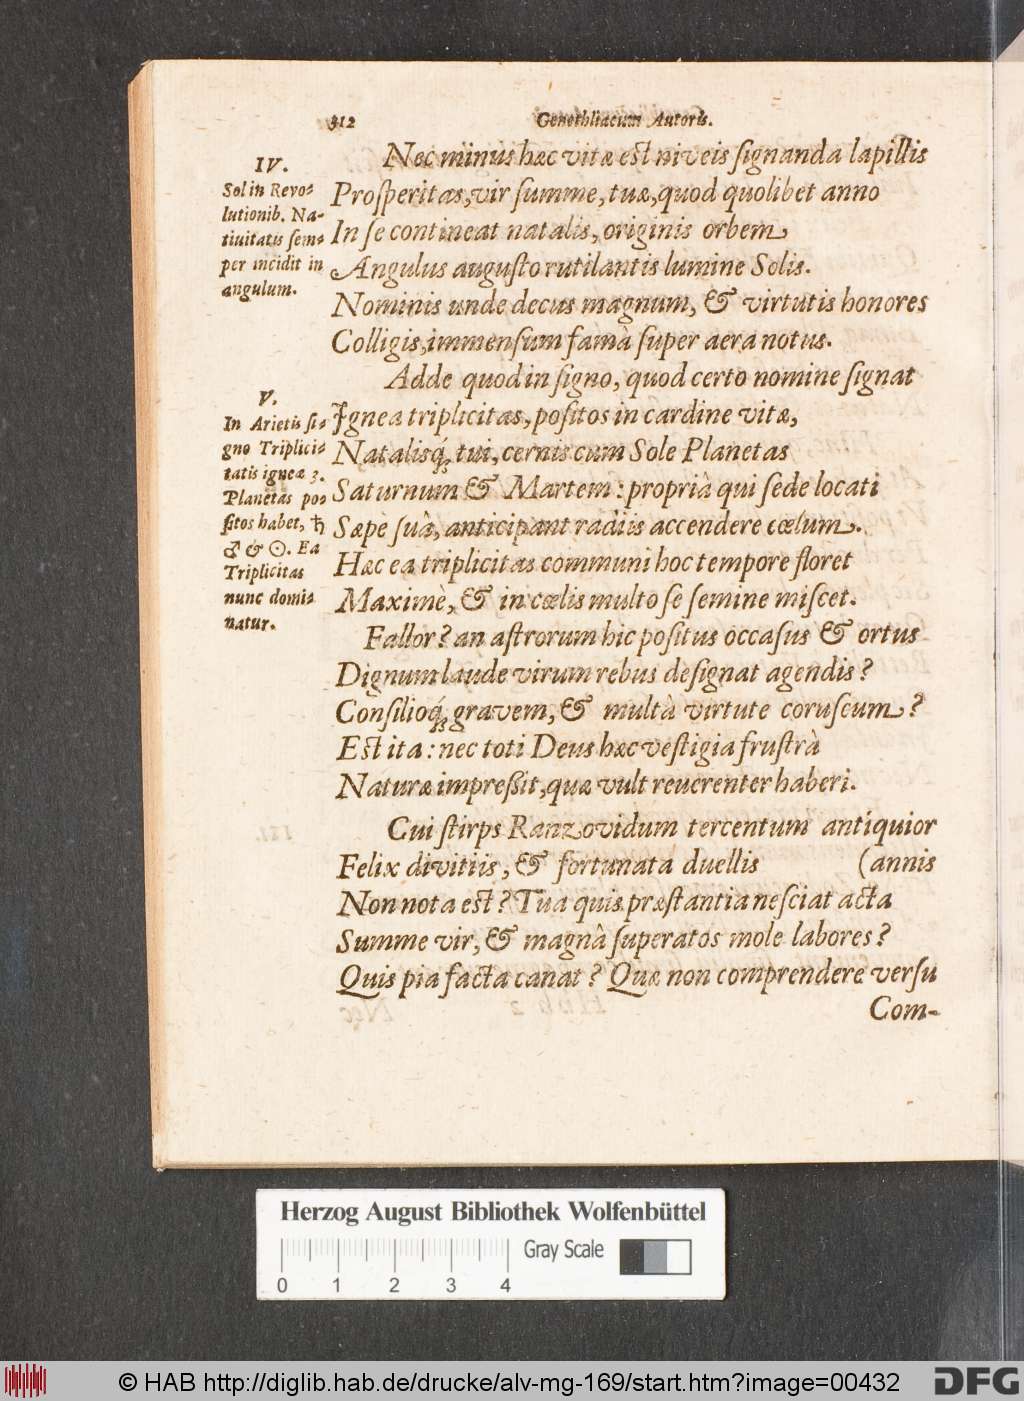 312 Genethliacum Autoris.
IV.
Sol in Revo-
lutionib. Na-
tiuitatis sem-
per incidit in
angulum.
Nec minus hæc vitæ est niveis signanda lapillis
Prosperitas, vir summe, tuæ, quod quolibet anno
In se contineat natalis, originis orbem
Angulus augusto rutilantis lumine Solis.
Nominis unde decus magnum, & virtutis honores
Colligis, immensum famâ super aera notus.
V.
In Arietis si-
gno Triplici-
tatis igneæ 3.
Planetas po-
sitos habet, ♄
♂ & ☉. Ea
Triplicitas
nunc domi-
natur.
Adde quod in signo, quod certo nomine signat
Ignea triplicitas, positos in cardine vitæ,
Natalisq́; tui, cernis cum Sole Planetas
Saturnum & Martem: propriâ qui sede locati
Sæpe suâ, anticipant radiis accendere cœlum.
Hæc ea triplicitas communi hoc tempore floret
Maximè, & in cœlis multo se semine miscet.
Fallor? an astrorum hic positus occasus & ortus
Dignum laude virum rebus designat agendis?
Consilioq́; gravem, & multâ virtute coruscum?
Est ita: nec toti Deus hæc vestigia frustrà
Naturæ impreßit, quæ vult reuerenter haberi.
Cui stirps Ranzovidum tercentum antiquior
Felix divitiis, & fortunata duellis (annis
Non nota est? Tua quis præstantia nesciat acta
Summe vir, & magnâ superatos mole labores?
Quis pia facta canat? Quæ non comprendere versu
Com-
Herzog August Bibliothek Wolfenbüttel
Gray Scale
0 1 2 3 4
© HAB http://diglib.hab.de/drucke/alv-mg-169/start.htm?image=00432
DFG